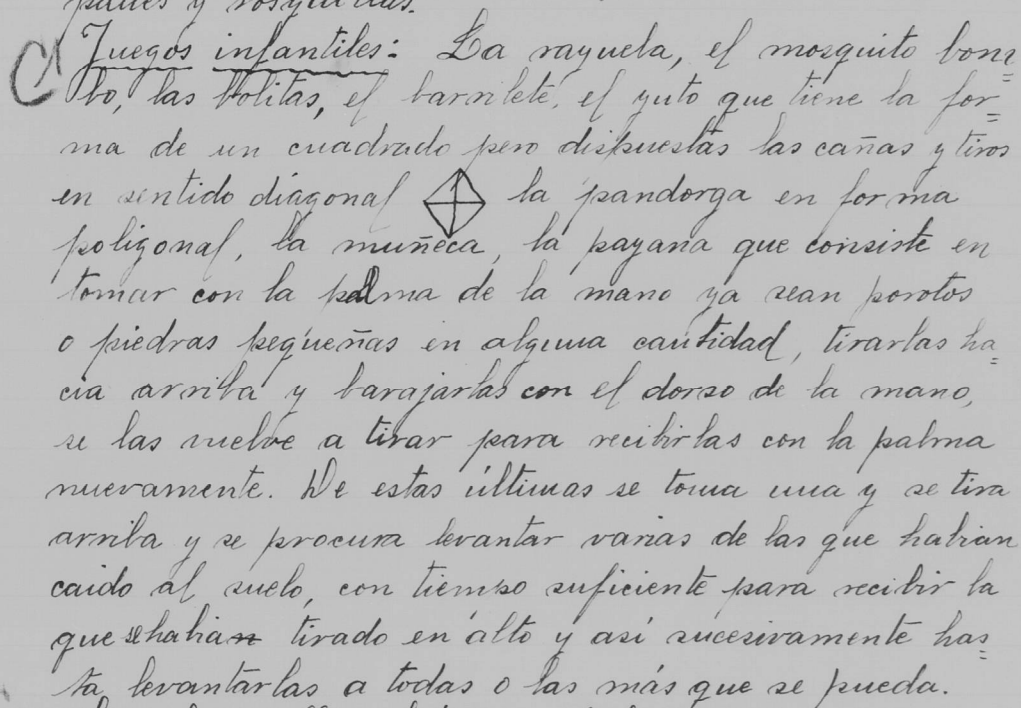 panes y rosquitas.
Juegos infantiles: La rayuela, el mosquito bom=
bo, las bolitas, el barrilete, el yuto que tiene la for=
ma de un cuadrado pero dispuestas las cañas y tiros
en sentido diagonal la pandorga en forma
poligonal, la muñeca, la payana que consiste en
tomar con la palma de la mano ya sean porotos
o piedras pequeñas en alguna cantidad, tirarlas ha=
cia arriba y barajarlas con el dorso de la mano,
se las vuelve a tirar para recibirlas con la palma
nuevamente. De estas últimas se toma una y se tira
arriba y se procura levantar varias de las que habian
caido al suelo, con tiempo suficiente para recibir la
que se habia tirado en alto y así sucesivamente has=
ta levantarlas a todas o las más que se pueda.